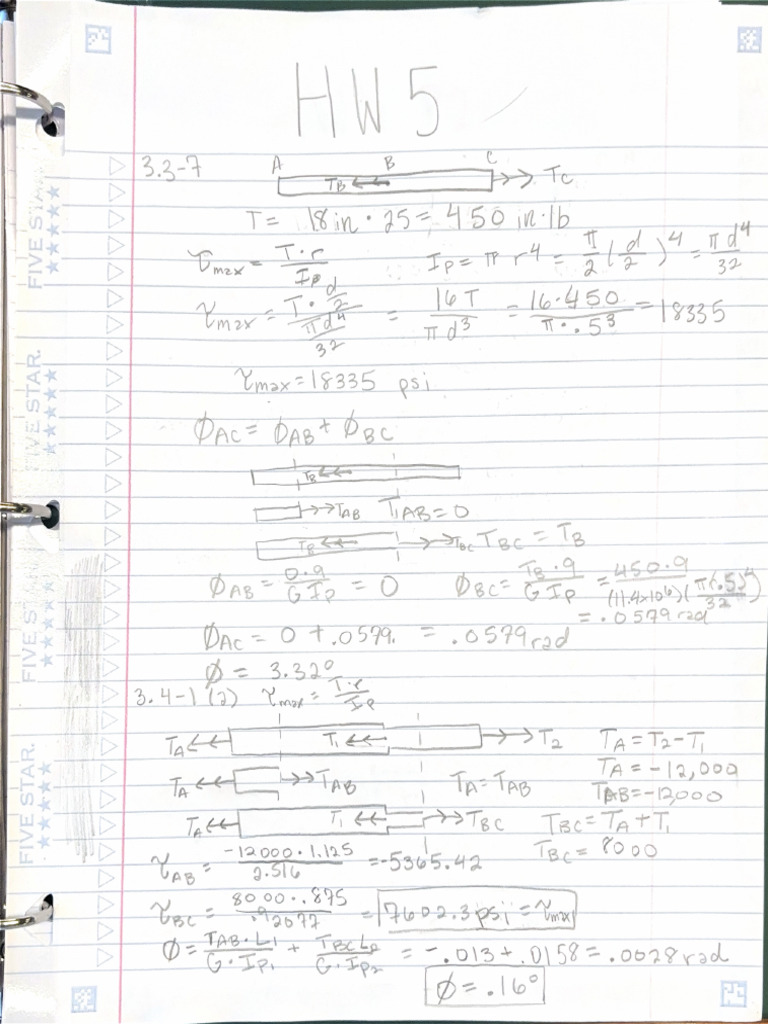 HW 5
3.3-7 A B C
T_B T_C
T = 18in · 25 = 450 in·lb
τ_max = T·r / I_P    I_P = π r⁴ = π/2 (d/2)⁴ = πd⁴/32
τ_max = T · d/2 / πd⁴/32 = 16T / πd³ = 16·450 / π·.5³ = 18335
τ_max = 18335 psi
Ø_AC = Ø_AB + Ø_BC
T_B
T_AB T_AB = 0
T_B T_BC T_BC = T_B
Ø_AB = 0·9 / G I_P = 0    Ø_BC = T_B·9 / G I_P = 450·9 / (11.4x10⁶)(π(.5)⁴/32)
= .0579 rad
Ø_AC = 0 + .0579 = .0579 rad
Ø = 3.32°
3.4-1 (a) τ_max = T·r / I_P
T_A T_1 T_2 T_A = T_2 - T_1
T_A = -12,000
T_A T_AB T_A = T_AB T_AB = -12000
T_A T_1 T_BC T_BC = T_A + T_1
T_BC = 8000
τ_AB = -12000 · 1.125 / 2.516 = -5365.42
τ_BC = 8000 · .875 / .92077 = 7602.3 psi = τ_max
Ø = T_AB · L_1 / G · I_P1 + T_BC L_2 / G · I_P2 = -.013 + .0158 = .0028 rad
Ø = .16°
FIVE STAR.
FIVE STAR.
FIVE STAR.
FIVE STAR.